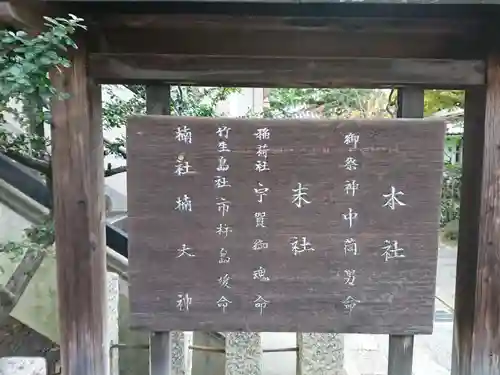 本社
御祭神中筒男命
末社
稲荷社宇賀御魂命
竹生島社市杵島媛命
楠社楠大神